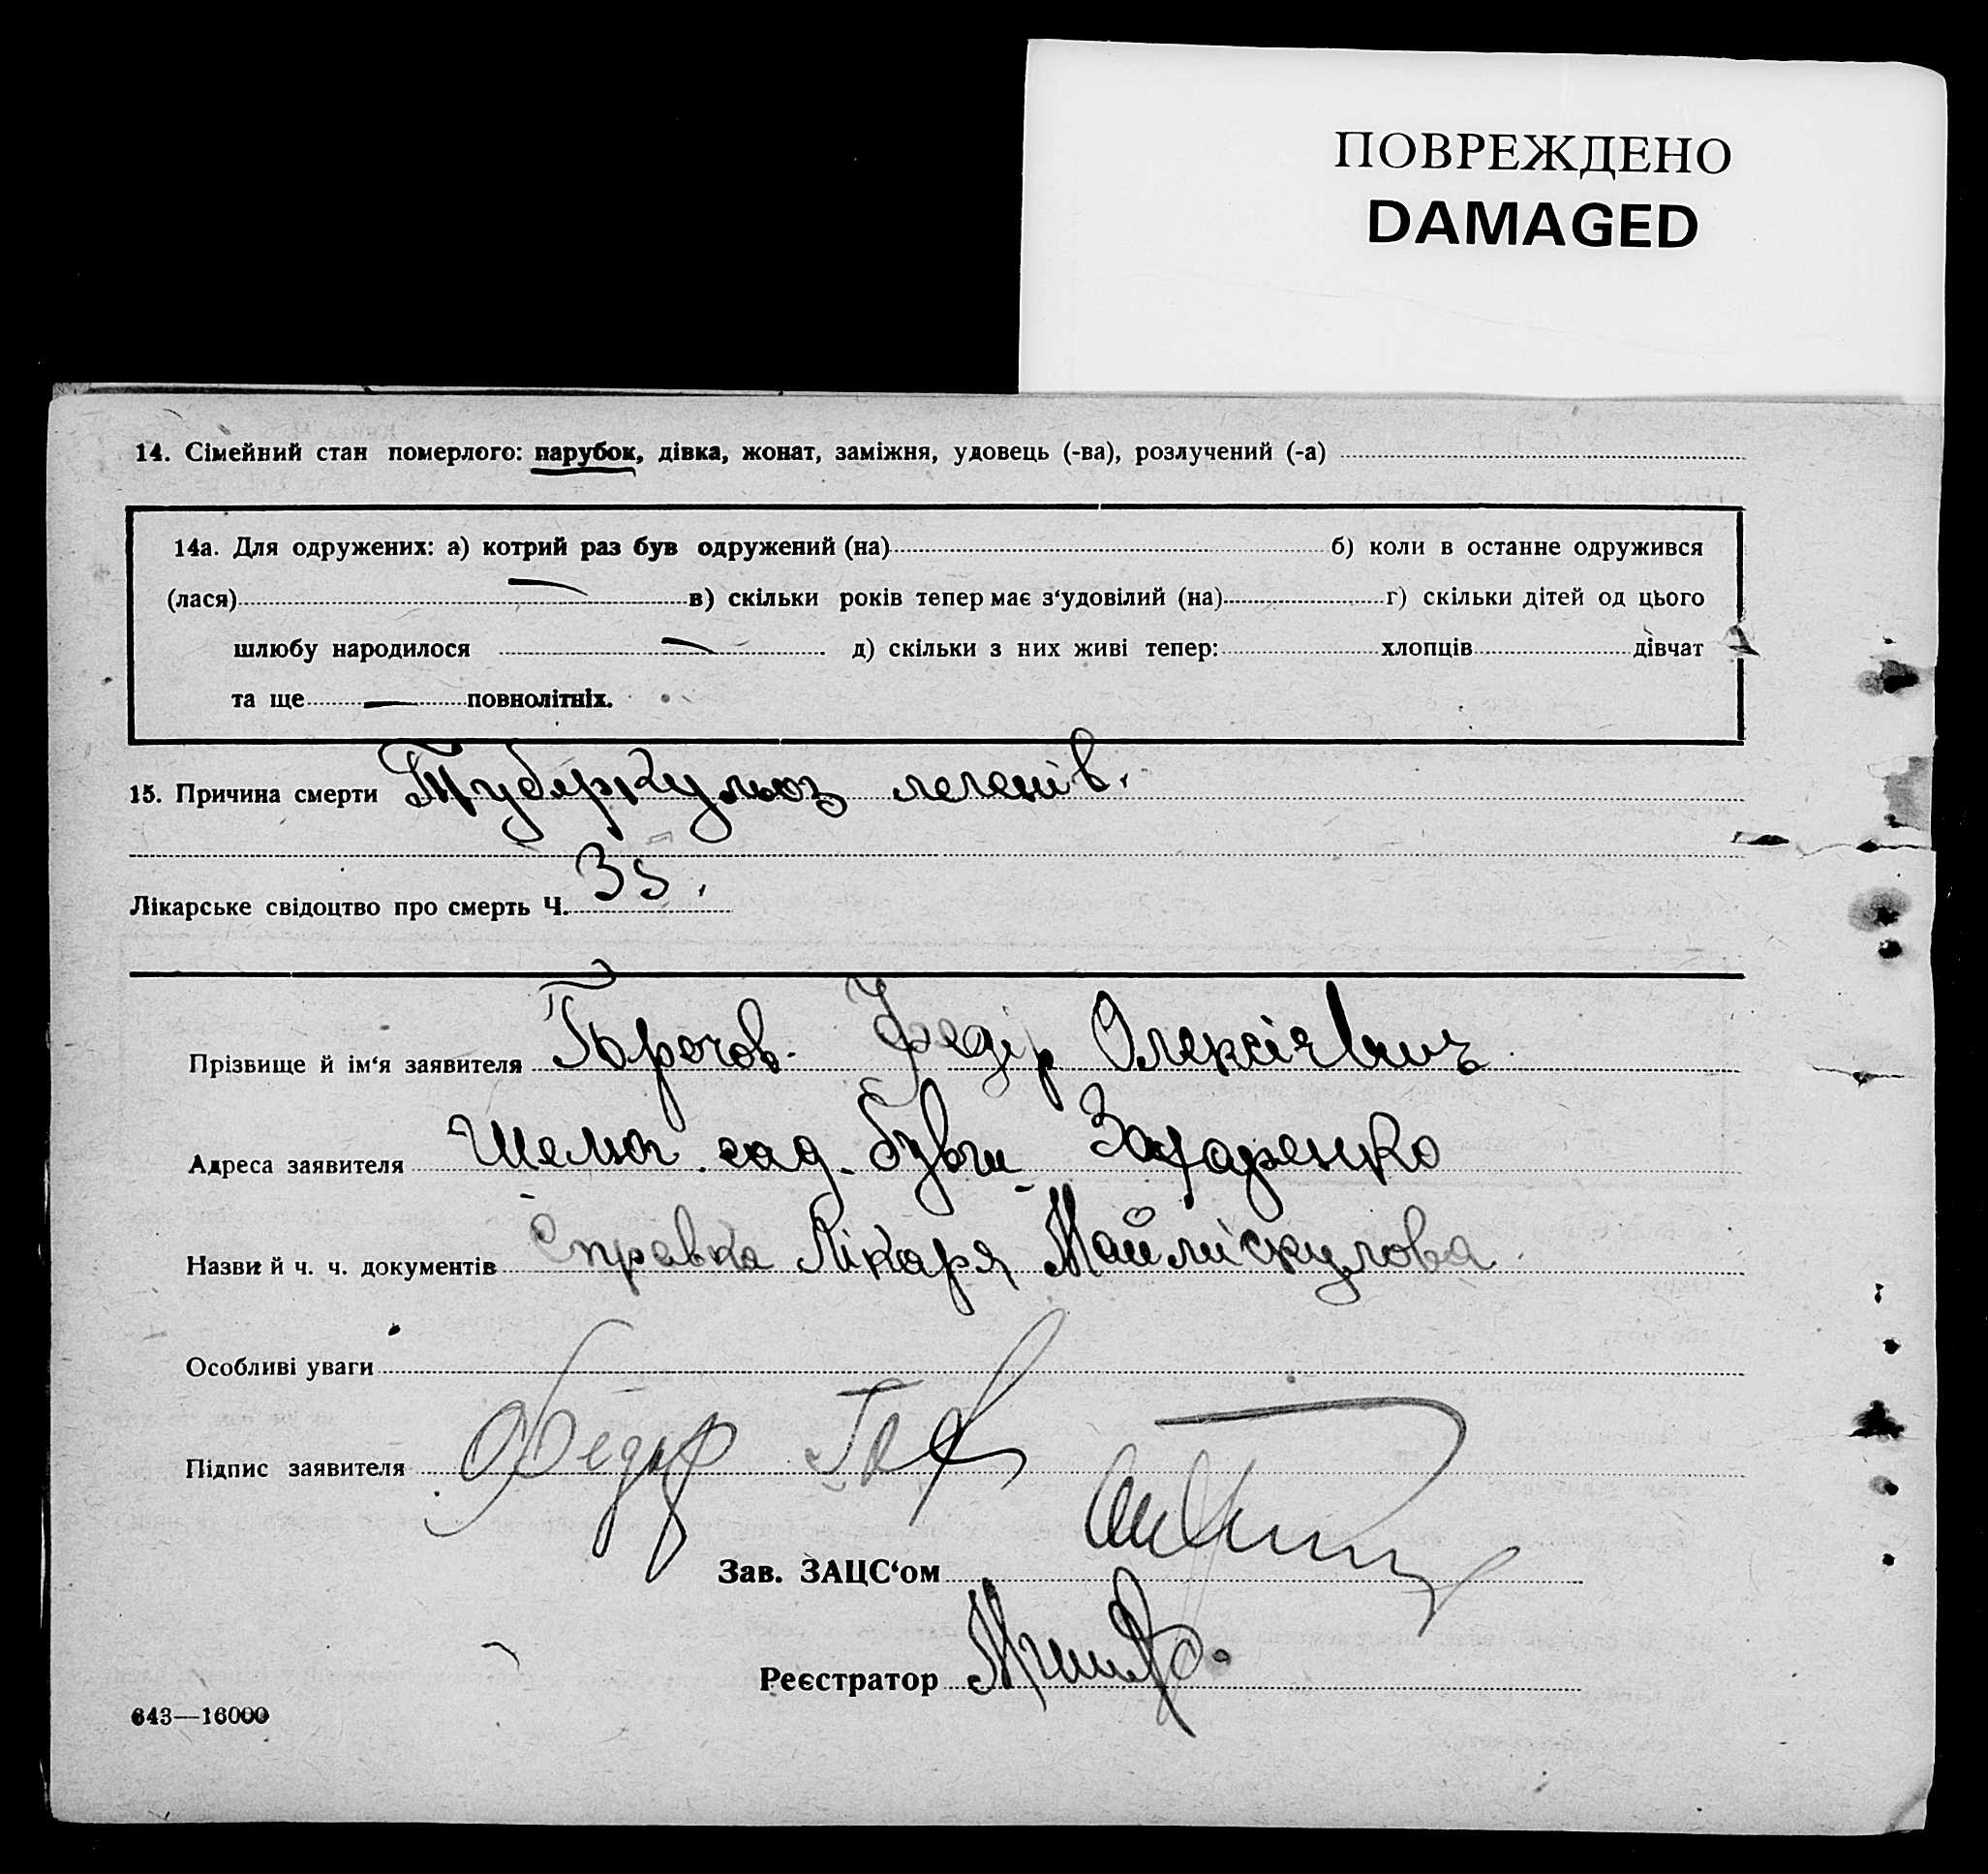 ПОВРЕЖДЕНО
DAMAGED
14. Сімейний стан померлого: парубок, дівка, жонат, заміжня, удовець (-ва), розлучений (-а)
14а. Для одружених: а) котрий раз був одружений (на) б) коли в останне одружився
(лася) — в) скільки років тепер має з‘удовілий (на) г) скільки дітей од цього
шлюбу народилося — д) скільки з них живі тепер: хлопців дівчат
та ще — повнолітніх.
15. Причина смерти Туберкульоз легенів.
Лікарське свідоцтво про смерть Ч. 35.
Прізвище й ім‘я заявителя Федір Олексієвич
Адреса заявителя сад. Захаренко
Назви й ч. ч. документів Справка Лікаря
Особливі уваги
Підпис заявителя Федир
Зав. ЗАЦС‘ом
Реєстратор
643—16000